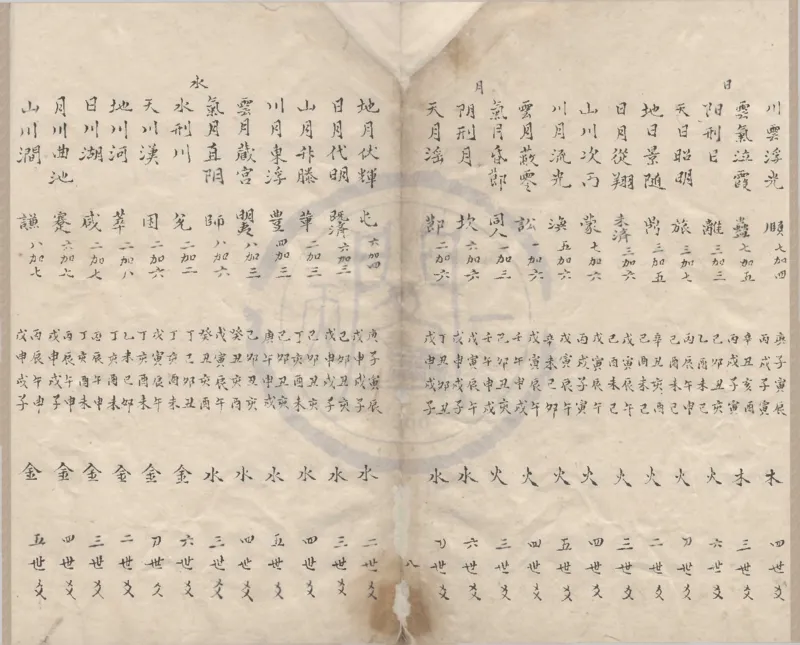 川雲浮光 頤 七加四 庚子寅辰 丙戌子寅 木 四世爻
雲氣泣霞 蠱 七加五 辛丑亥酉 丙戌子寅 木 三世爻
日
阳刑日 離 三加三 己卯丑亥 己酉未己 火 六世爻
天日昭明 旅 三加七 丙辰午申 己酉未己 火 刀世爻
地日景随 鼎 三加五 辛丑亥酉 己酉未己 火 二世爻
日月從翔 未濟 三加六 戊寅辰午 己酉未己 火 三世爻
山川次丙 蒙 七加六 戊寅辰午 丙戌子寅 火 四世爻
川月流光 渙 五加六 戊寅辰午 辛未己卯 火 五世爻
雲月蔽零 訟 一加六 戊寅辰午 壬午申戌 火 四世爻
氣月食節 同人 一加三 己卯丑亥 壬午申戌 火 三世爻
月
阴刑月 坎 六加六 戊寅辰午 戊申戌子 水 六世爻
天月滛 節 二加六 丁己卯丑 戊申戌子 水 刀世爻
八
地月伏輝 屯 六加四 庚子寅辰 戊申戌子 水 二世爻
日月代明 既濟 六加三 己卯丑亥 戊申戌子 水 三世爻
山月升騰 革 二加三 己卯丑亥 丁亥酉未 水 四世爻
川月東浮 豊 四加三 己卯丑亥 庚午申戌 水 五世爻
雲月蔵宮 明夷 八加三 己卯丑亥 癸丑亥酉 水 四世爻
氣月直阴 師 八加六 戊寅辰午 癸丑亥酉 水 三世爻
水
水刑川 兌 二加二 丁己卯丑 丁亥酉未 金 六世爻
天川漢 困 二加六 戊寅辰午 丁亥酉未 金 刀世爻
地川河 萃 二加八 乙未己卯 丁亥酉未 金 二世爻
日川湖 咸 二加七 丙辰午申 丁亥酉未 金 三世爻
月川曲池 蹇 六加七 丙辰午申 戊申戌子 金 四世爻
山川澗 謙 八加七 丙辰午申 戊申戌子 金 五世爻